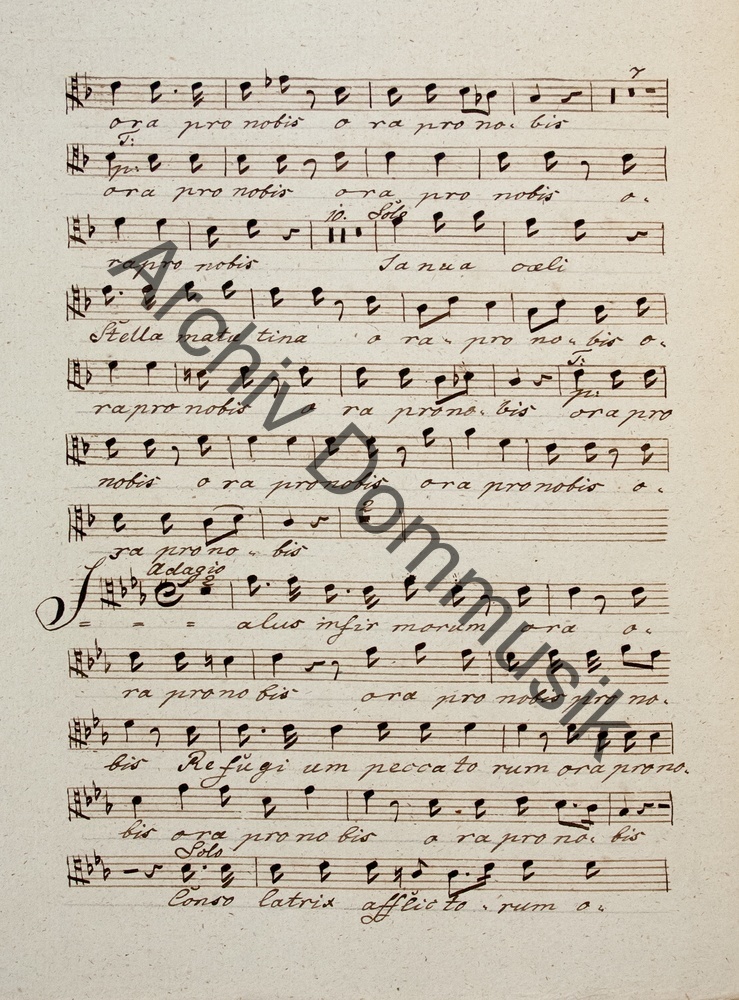 7
ora pro nobis o ra pro no- bis
T:
p:
ora pro nobis ora pro nobis o-
10. Solo
rapro nobis Ianua cæli
Stella matutina o ra- pro no- bis o-
T:
p:
rapro nobis o ra prono- bis ora pro
nobis o ra pronobis ora pronobis o-
2
ra prono- bis
Adagio
2
S= = = alus infirmorum ora o-
ra pronobis ora pro nobis pro no-
bis Refugi um peccatorum ora prono-
bis ora pronobis o ra prono- bis
Solo
Conso latrix afflicto- rum o-
Archiv Dommusik